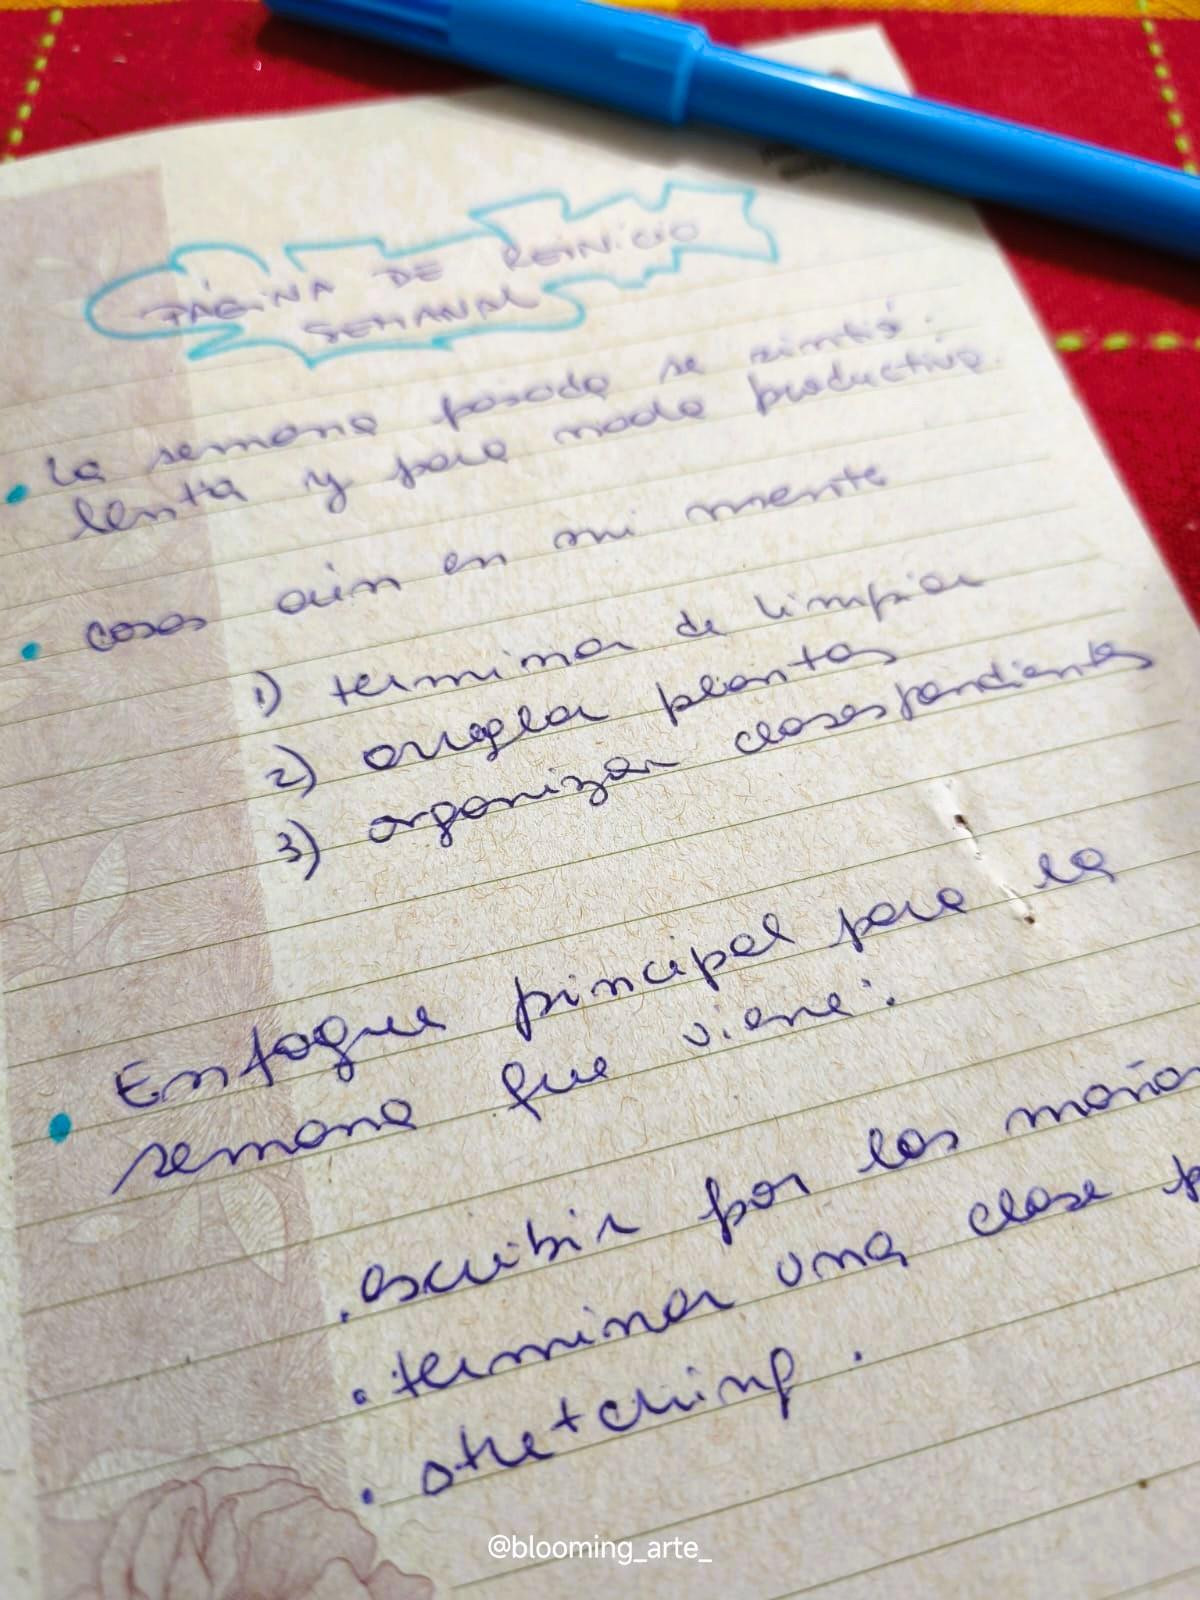 PÁGINA DE REINICIO
SEMANAL
• La semana pasada se sintió
lenta y para nada productiva.
• cosas aún en mi mente
1) terminar de limpiar
2) arreglar plantas
3) organizar clases pendientes
• Enfoque principal para la
semana que viene:
. escribir por las mañan
. terminar una clase p
. stretching.
@blooming_arte_